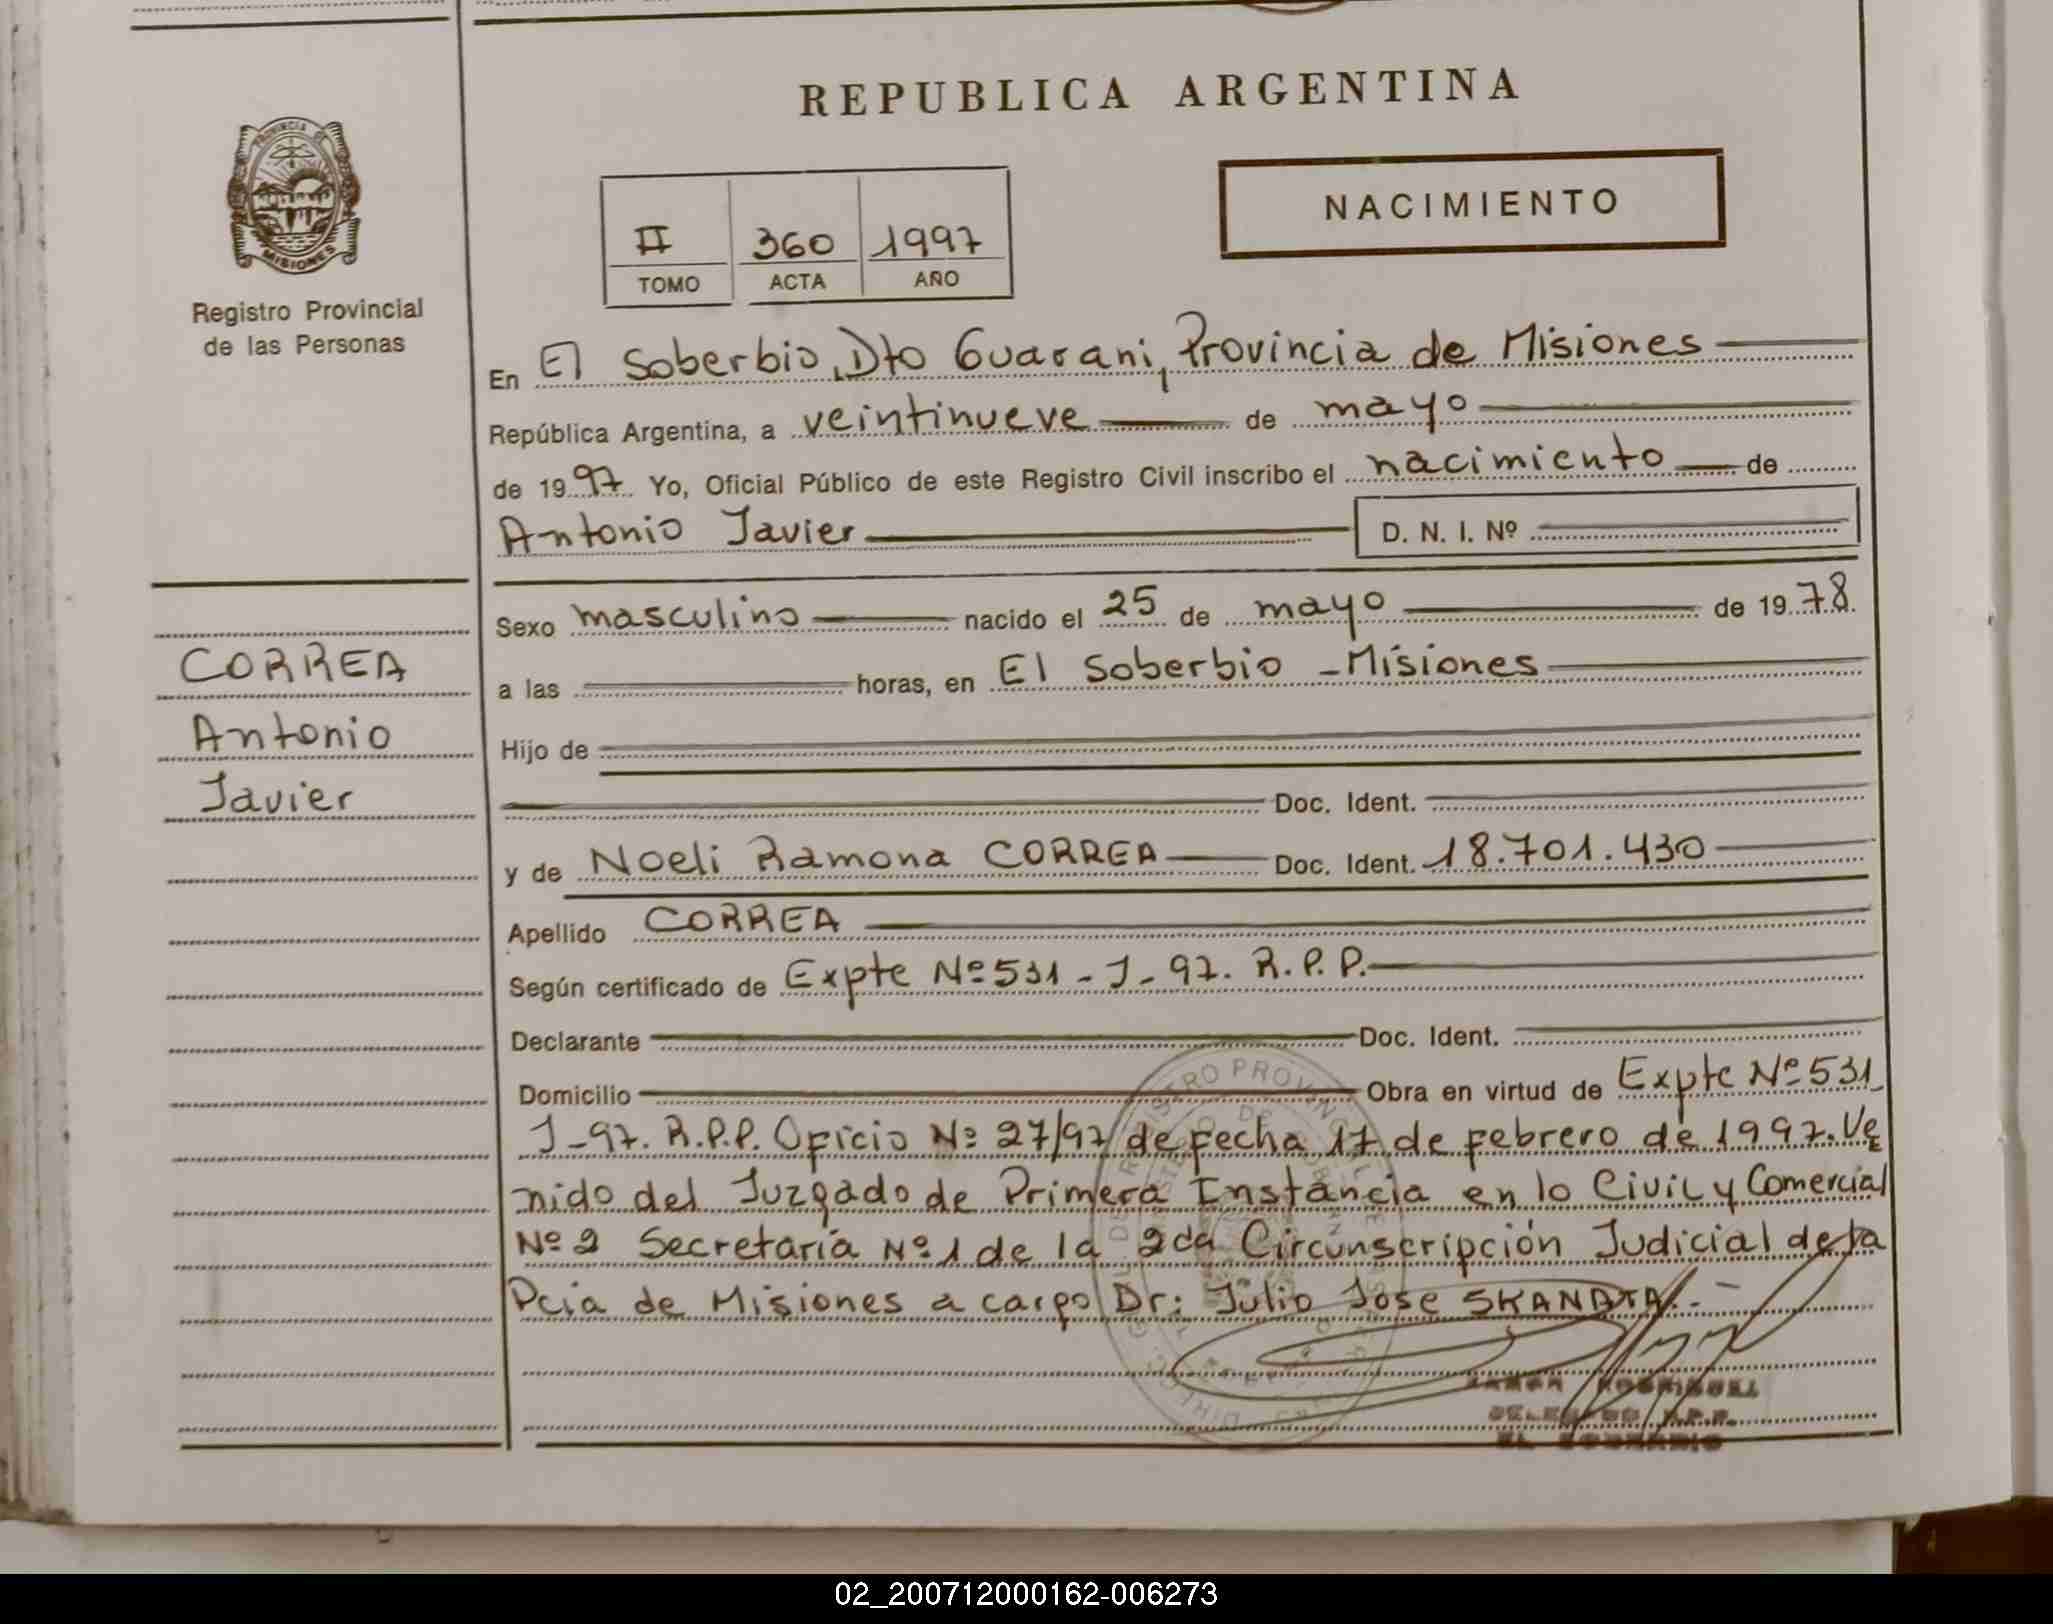 REPUBLICA ARGENTINA
PROVINCIA DE MISIONES
Registro Provincial
de las Personas
NACIMIENTO
II 360 1997
TOMO ACTA AÑO
En El Soberbio, Dto Guarani, Provincia de Misiones
República Argentina, a veintinueve de mayo
de 1997 Yo, Oficial Público de este Registro Civil inscribo el nacimiento de
Antonio Javier D. N. I. Nº
CORREA
Antonio
Javier
Sexo masculino nacido el 25 de mayo de 1978
a las horas, en El Soberbio - Misiones
Hijo de
Doc. Ident.
y de Noeli Ramona CORREA Doc. Ident. 18.701.430
Apellido CORREA
Según certificado de Expte Nº 531 - J - 97. R.P.P.
Declarante Doc. Ident.
Domicilio Obra en virtud de Expte Nº 531
J - 97. R.P.P. Oficio Nº 27/97 de fecha 17 de febrero de 1997. Ve
nido del Juzgado de Primera Instancia en lo Civil y Comercial
Nº 2 Secretaría Nº 1 de la 2da Circunscripción Judicial de la
Pcia de Misiones a cargo Dr: Julio Jose
RAMON RODRIGUEZ
DELEGADO R.P.P.
EL SOBERBIO
02_200712000162-006273